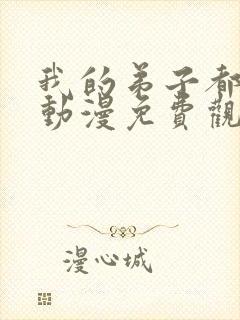 我的弟子都
動漫免費觀
漫心城